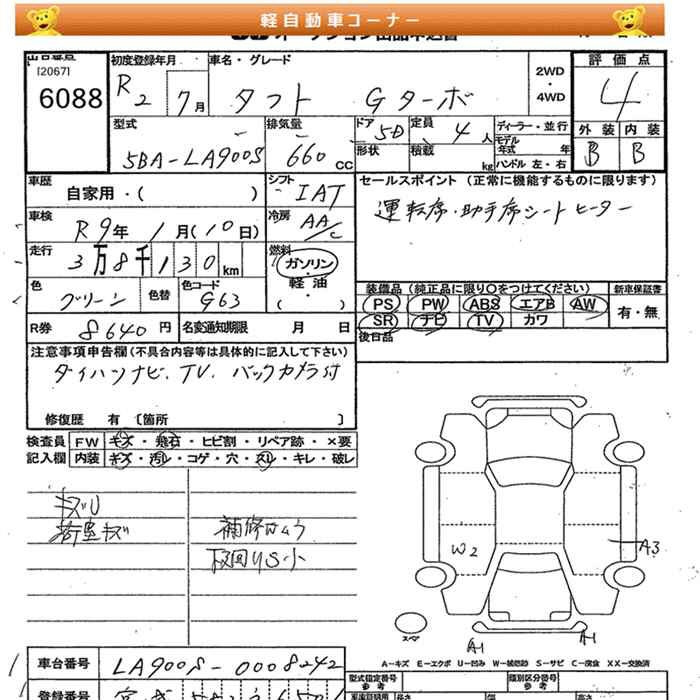 軽自動車コーナー
[2067]
6088
初度登録年月
R2 7月
車名・グレード
タフト Gターボ
2WD
・
4WD
評価点
4
外装 内装
B B
型式
5BA-LA900S
排気量
660 CC
ドア
5D
定員
4人
形状
積載
kg
ディーラー・並行
モデル
年式 年
ハンドル 左・右
車歴
自家用・( )
シフト
IAT
冷房
AA/C
セールスポイント (正常に機能するものに限ります)
運転席・助手席シートヒーター
車検
R9年 1月(10日)
走行
3万8千130km
燃料
ガソリン
・
軽油
・
( )
色
グリーン
色替
色コード
G63
装備品 (純正品に限り○をつけてください)
PS PW ABS エアB AW
SR ナビ TV カワ
新車保証書
有・無
後日品
R券 8640円
名変通知期限 月 日
注意事項申告欄(不具合内容等は具体的に記入して下さい)
ダイハツナビ、TV、バックカメラ付
修復歴 有 〔箇所 〕
検査員 FW キズ・飛石・ヒビ割・リペア跡・×要
記入欄 内装 キズ・汚レ・コゲ・穴・スレ・キレ・破レ
キズU
W2
A3
A1
A1
スペア
A-キズ E-エクボ U-凹み W-補修跡 S-サビ C-腐食 XX-交換済
車台番号 LA900S-0008242
登録番号
型式指定番号
参考
類別区分番号
参考